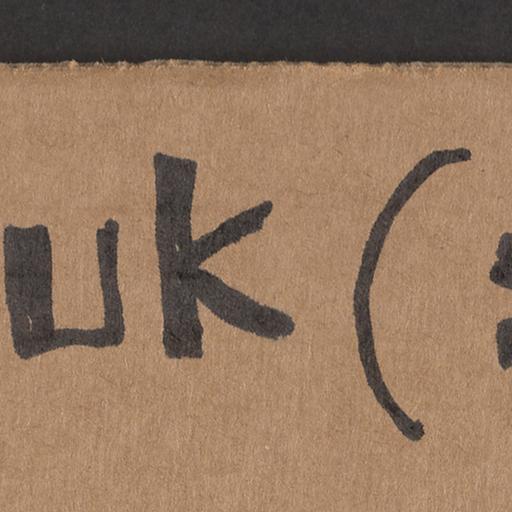 uk (: